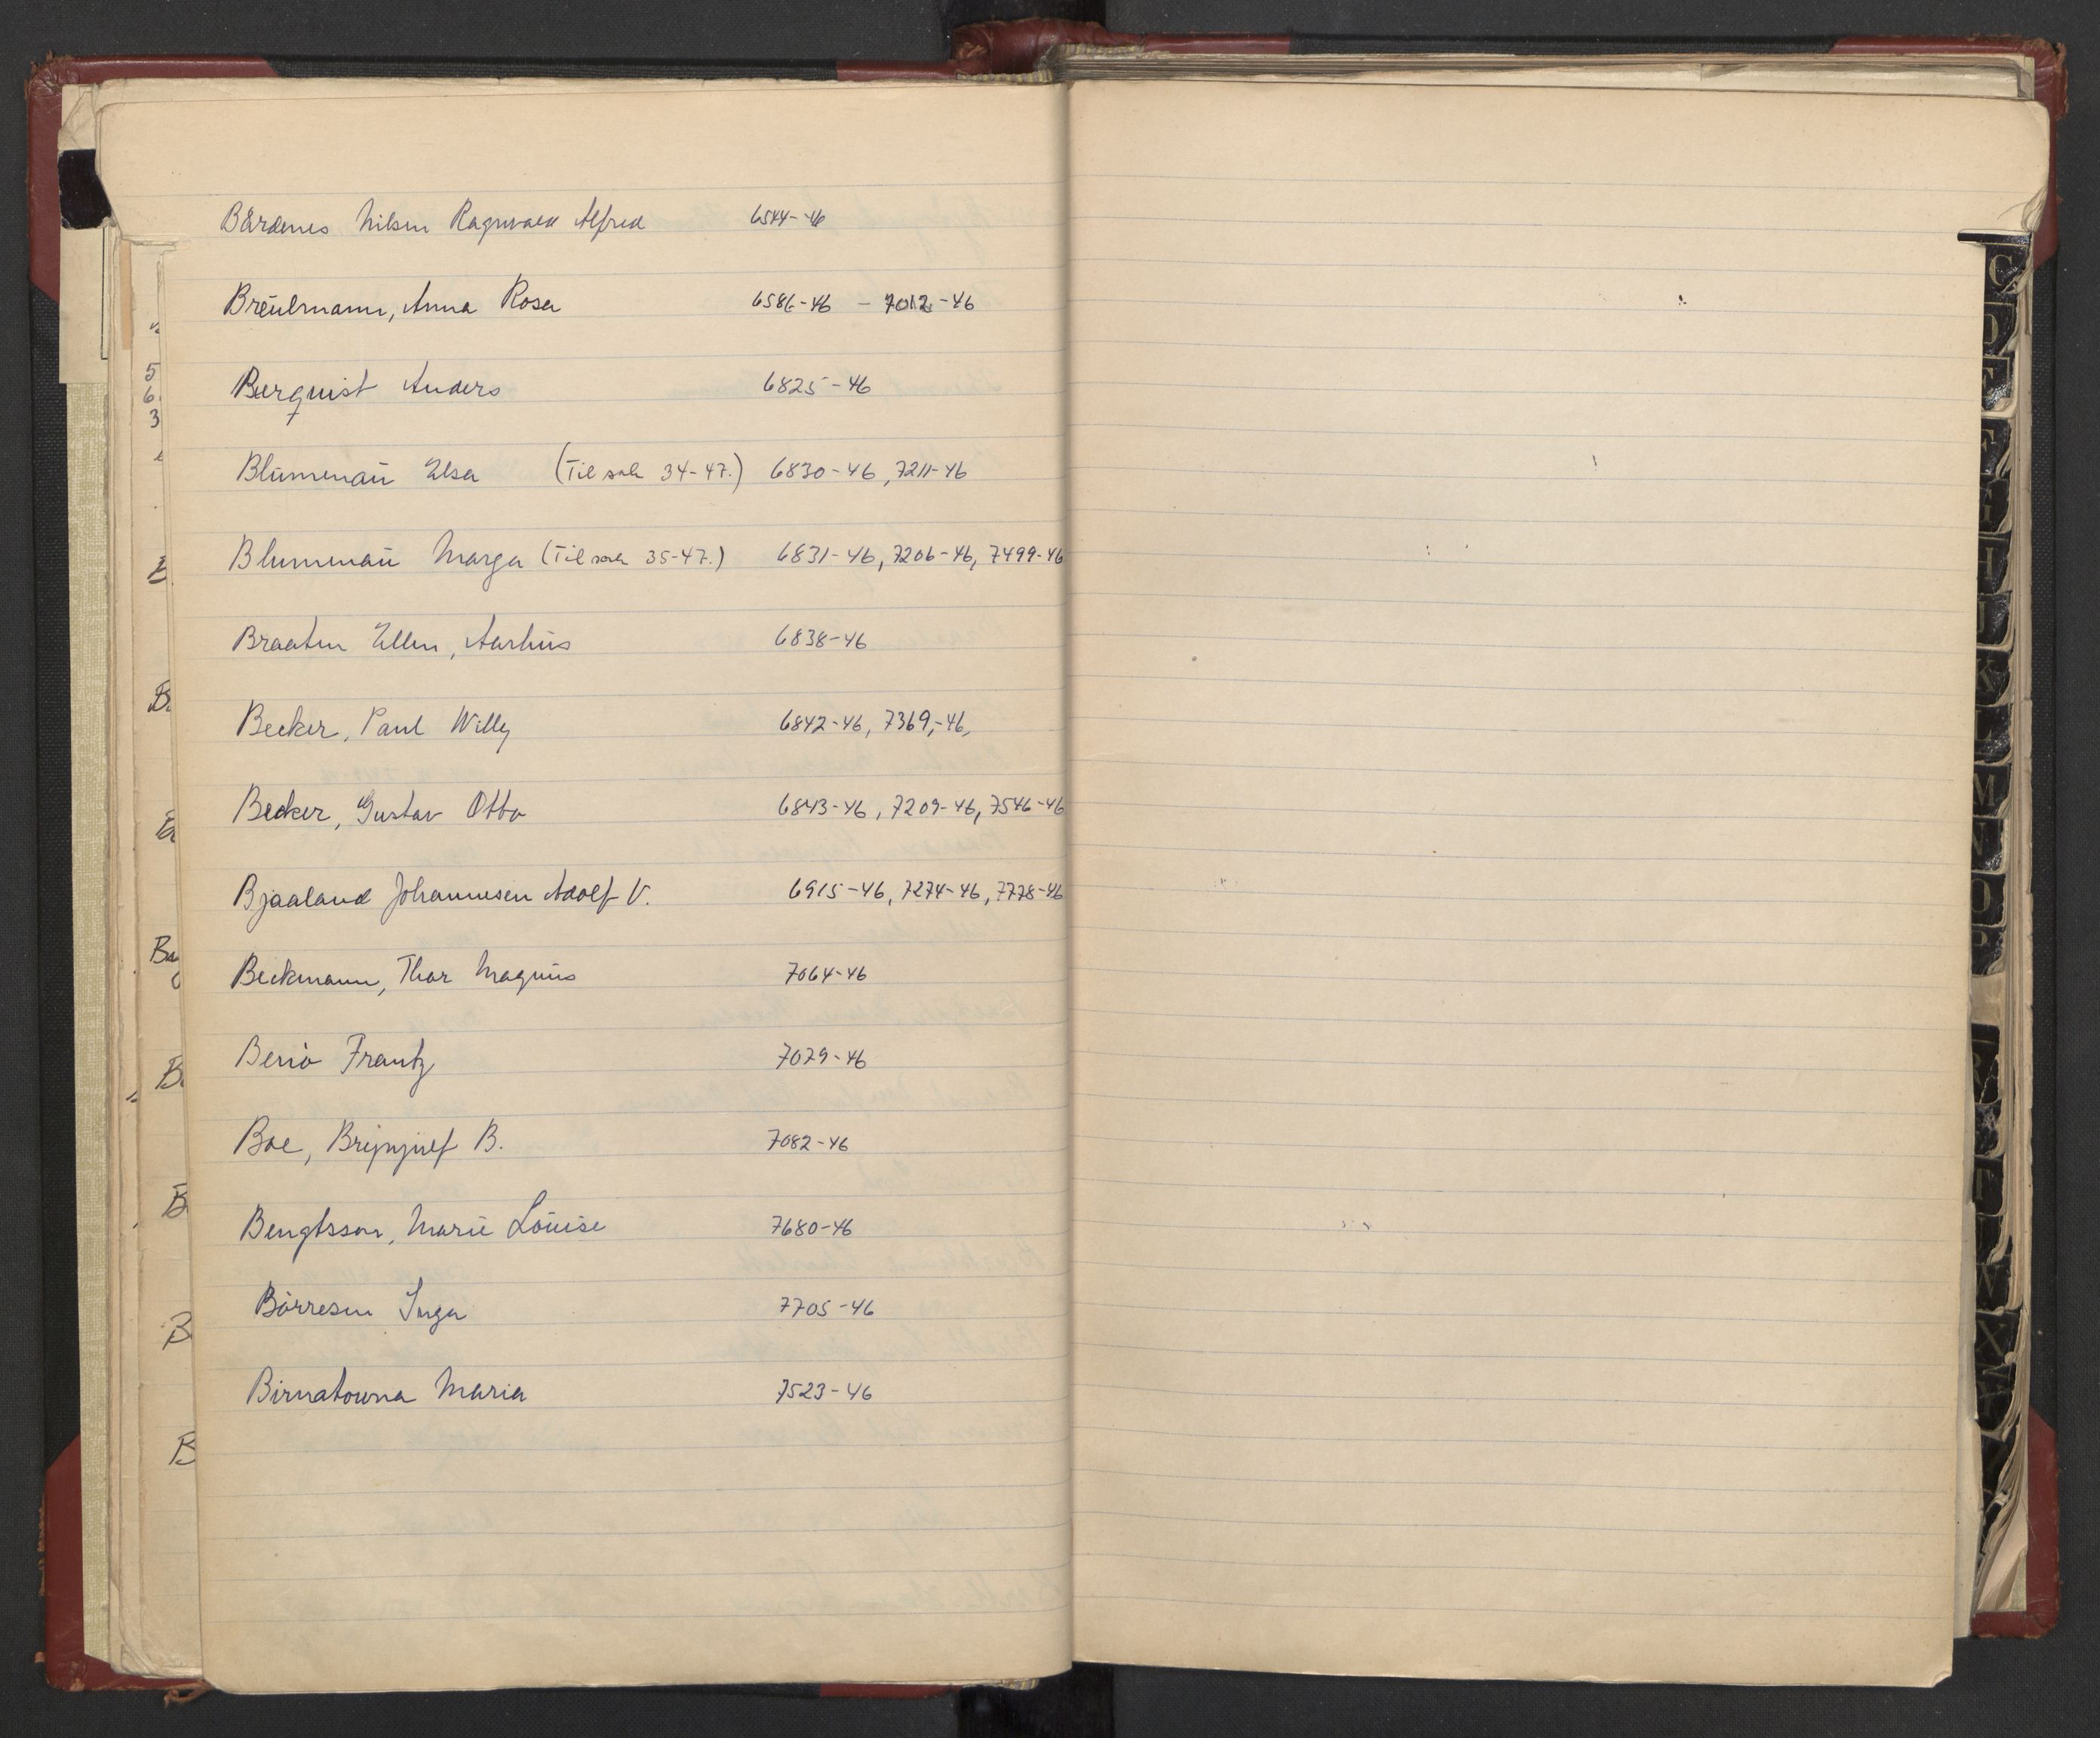 Bårdenes Nilsen Ragnvald Alfred 6544-46
Breulmann, Anna Rosa 6586-46 - 7012-46
Berquist Anders 6825-46
Blumenau Elsa (Til sak 34-47.) 6830-46, 7211-46
Blumenau Marga (Til sak 35-47.) 6831-46, 7206-46, 7499-46
Braaten Ellen, Aarhus 6838-46
Becker, Paul Willy 6842-46, 7369,-46,
Becker, Gustav Otto 6843-46, 7209-46, 7546-46
Bjaaland Johannesen Adolf V. 6915-46, 7274-46, 7778-46
Beckmann, Thor Magnus 7064-46
Berio Frantz 7079-46
Boe, Brynjulf B. 7082-46
Bengtsson, Marie Louise 7680-46
Börresen Inga 7705-46
Birnatowna Maria 7523-46